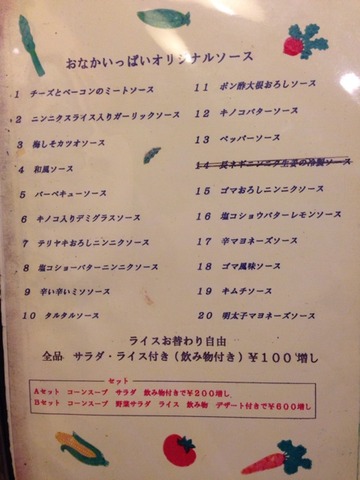 おなかいっぱいオリジナルソース
1 チーズとベーコンのミートソース
2 ニンニクスライス入りガーリックソース
3 梅しそカツオソース
4 和風ソース
5 バーベキューソース
6 キノコ入りデミグラスソース
7 テリヤキおろしニンニクソース
8 塩コショーバターニンニクソース
9 辛い辛いミソソース
10 タルタルソース
11 ポン酢大根おろしソース
12 キノコバターソース
13 ペッパーソース
14 長ネギニンニク生姜の冷製ソース
15 ゴマおろしニンニクソース
16 塩コショウバターレモンソース
17 辛マヨネーズソース
18 ゴマ風味ソース
19 キムチソース
20 明太子マヨネーズソース
ライスお替わり自由
全品 サラダ・ライス付き(飲み物付き)¥100増し
セット
Aセット コーンスープ サラダ 飲み物付きで¥200増し
Bセット コーンスープ 野菜サラダ ライス 飲み物 デザート付きで¥600増し